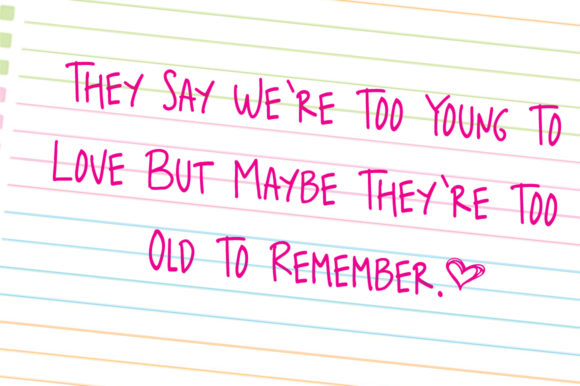 They Say We're Too Young To
Love But Maybe They're Too
Old To Remember.♡